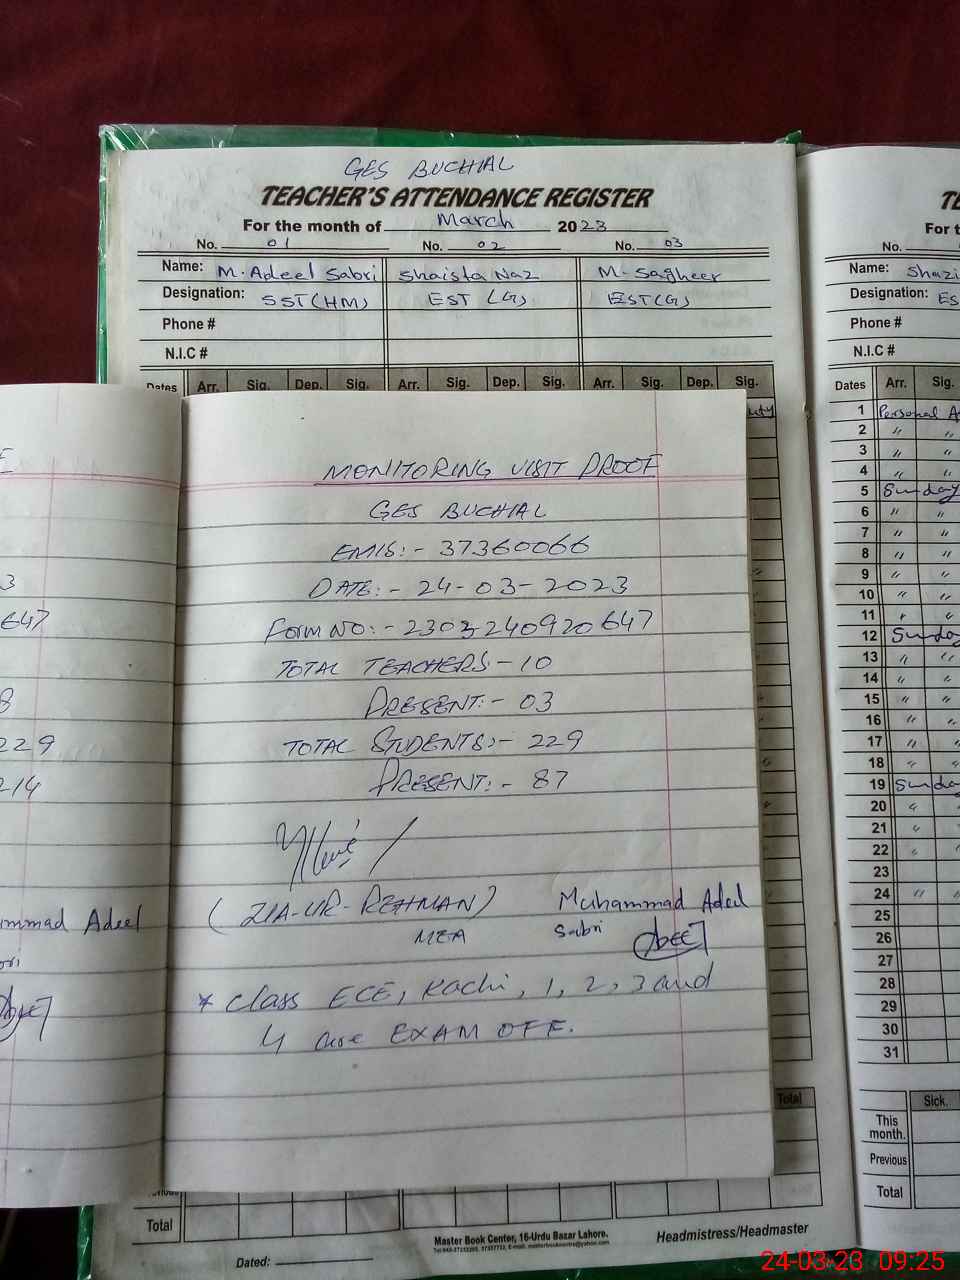 GES BUCHIAL
TEACHER'S ATTENDANCE REGISTER
For the month of March 2023
No. 01 No. 02 No. 03
Name: M. Adeel Sabri Shaista Naz M. Sagheer
Designation: SST(HM) EST (G) EST(G)
Phone #
N.I.C #
Dates Arr. Sig. Dep. Sig. Arr. Sig. Dep. Sig. Arr. Sig. Dep. Sig.
MONITORING VISIT PROOF
GES BUCHIAL
EMIS:- 37360066
DATE:- 24-03-2023
Form NO:- 2303240920647
TOTAL TEACHERS:- 10
PRESENT:- 03
TOTAL STUDENTS:- 229
PRESENT:- 87
(ZIA-UR-REHMAN) Muhammad Adeel
MEA Sabri
Adeel
* Class ECE, Kachi, 1, 2, 3 and
4 are EXAM OFF.
3
647
8
229
214
mmad Adeel
Total
Total
Master Book Center, 16-Urdu Bazar Lahore.
Headmistress/Headmaster
Dated:
For t
No.
Name: Shazi
Designation: ES
Phone #
N.I.C #
Dates Arr. Sig.
1 Personal A
2 " "
3 " "
4 " "
5 Sunday
6 " "
7 " "
8 " "
9 " "
10 " "
11 " "
12 Sunday
13 " "
14 " "
15 " "
16 " "
17 " "
18 " "
19 Sunday
20 "
21 "
22 "
23
24 " "
25
26
27
28
29
30
31
Sick.
This
month.
Previous
Total
24-03-23 09:25